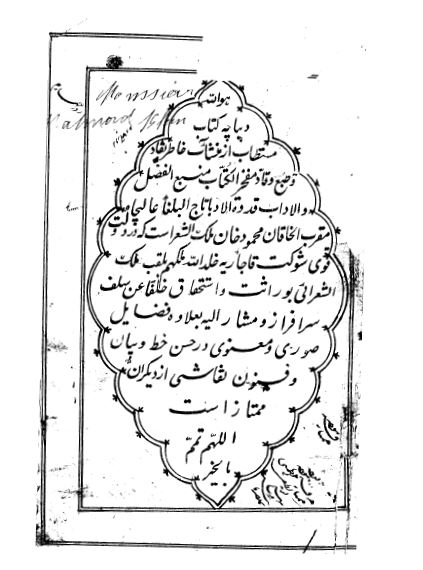 Monssieur
Mahmoud Khan
هوالله
دیباچه کتاب
مستطاب از منشآت خاطر نقاد
و طبع وقاد مفخر الکتاب منبع الفضل
والاداب قدوة الادبا تاج البلغا عالیجاه
مقرب الخاقان محمود خان ملک الشعراست که در دولت
قوی شوکت قاجاریه خلد الله ملکهم بلقب ملک
الشعرائی بوراثت و استحقاق خلفا عن سلف
سرافراز و مشار الیه بعلاوه فضایل
صوری و معنوی در حسن خط و بیان
و فنون نقاشی از دیگران
ممتاز است
اللهم تمم
بالخیر